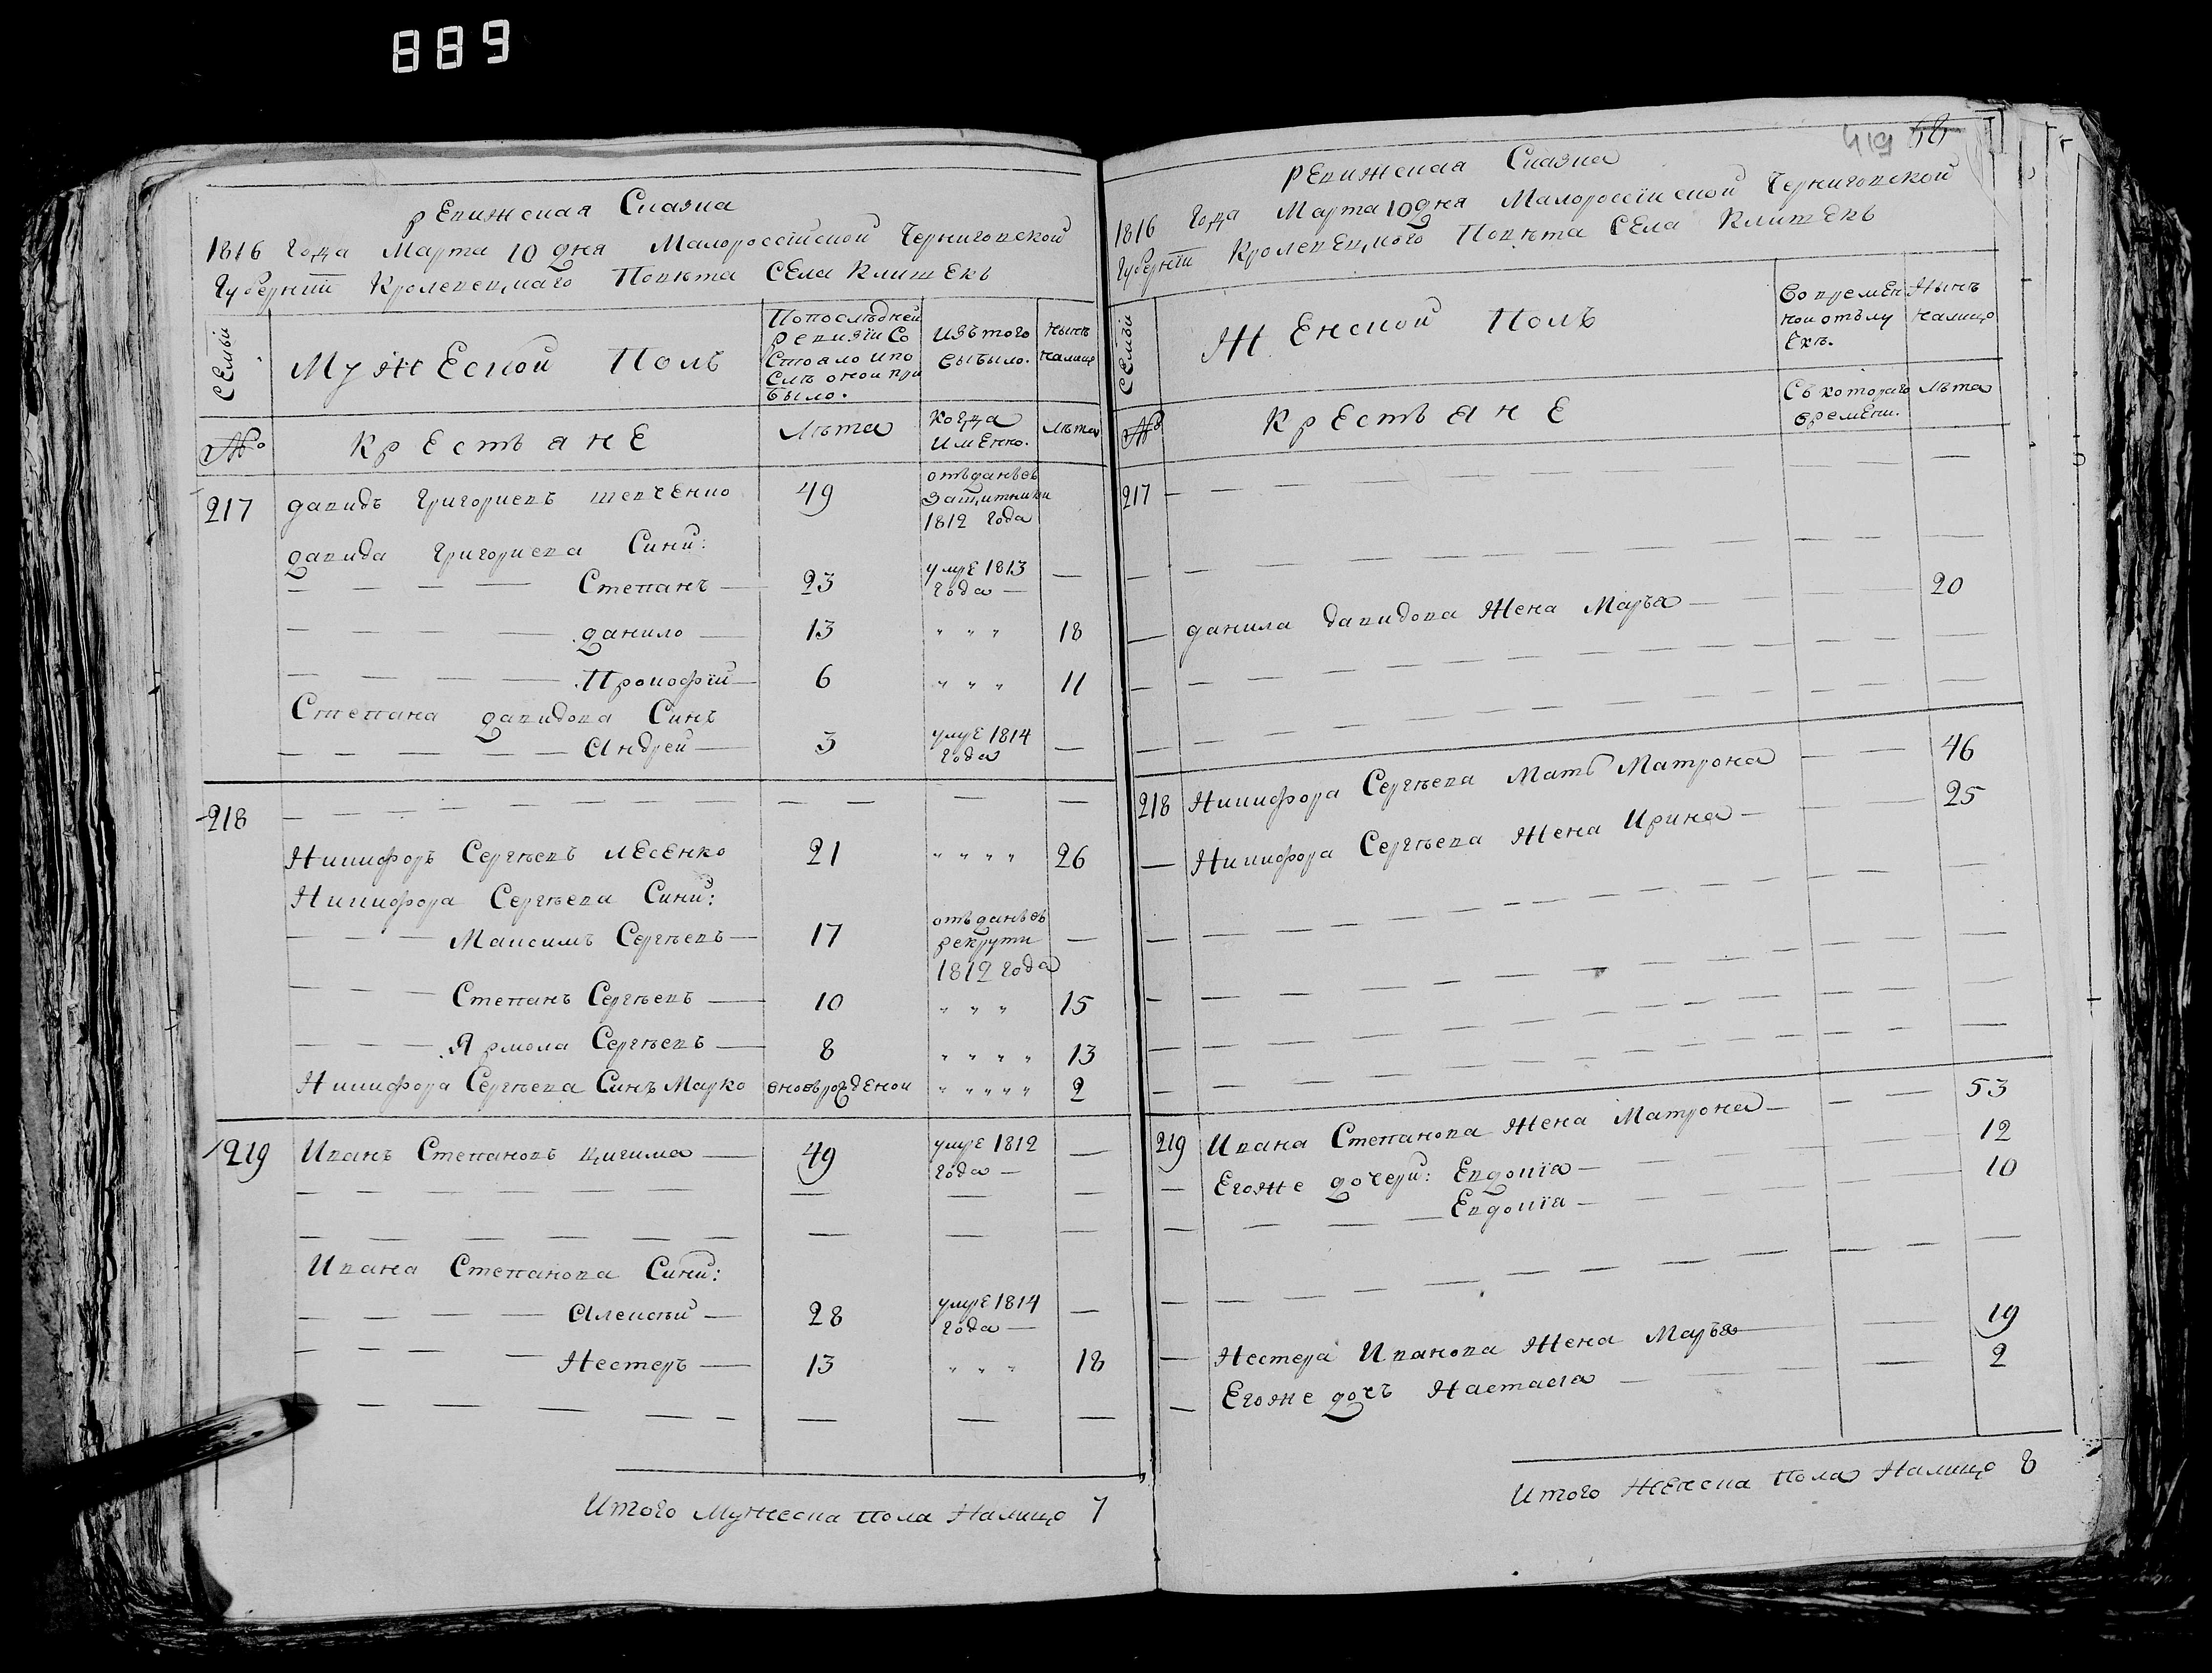 889
Ревижская Сказка
1816 Года Марта 10 дня Малороссійской Черниговской
Губерніи Кролевецкаго Повѣта Села Клишекъ
Семьи
Мужеской Полъ
Попослѣдней
ревизіи Со
стояло и по
слѣ оной при
было.
Изъ того
выбыло.
Нынѣ
налицо
№
Крестьяне
Лѣта
Когда
именно.
Лѣта
217 Давидъ Григориевъ Шевченко 49 отъданъ въ
Защитники
1812 Года
Давида Григориева Сини:
Степанъ 23 умре 1813
Года
Данило 13 " " " 18
Прокофій 6 " " " 11
Степана Давидова Синъ
Андрей 3 умре 1814
Года
218
Никифоръ Сергѣевъ Лесенко 21 " " " " 26
Никифора Сергѣева Сини:
Максимъ Сергѣевъ 17 отъданъ въ
рекрути
1812 года
Степанъ Сергѣевъ 10 " " " 15
Ярмола Сергѣевъ 8 " " " " 13
Никифора Сергѣева Синъ Марко вновърожденои " " " " " 2
219 Иванъ Степановъ Цигима 49 умре 1812
Года
Ивана Степанова Сини:
Алексѣй 28 умре 1814
Года
Нестеръ 13 " " " 18
Итого Мужеска пола Налицо 7
419 58
Ревижская Сказка
1816 Года Марта 10 дня Малороссійской Черниговской
Губерніи Кролевецкого Повѣта Села Клишекъ
Семьи
Женской Полъ
Во времен
ной отълу
чкѣ.
Нынѣ
налицо
№
Крестьяне
Съ котораго
времени.
Лѣта
217
Данила Давидова Жена Марья 20
218 Никифора Сергѣева Мать Матрона 46
Никифора Сергѣева Жена Ирина 25
219 Ивана Степанова Жена Матрона 53
Егоже дочери: Евдокіа 12
Евдокіа 10
Нестера Иванова Жена Марья 19
Егоже дочъ Настасіа 2
Итого Женска пола Налицо 8